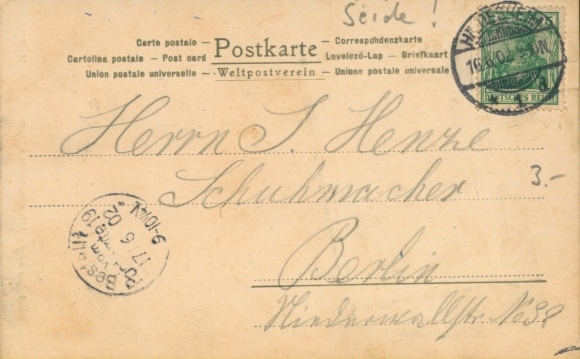 Seide!
Carte postale — Postkarte — Correspondenzkarte
Cartolina postale — Post card — Levelező-Lap — Briefkaart
Union postale universelle — Weltpostverein — Unione postale universale
DEUTSCHES REICH
Herrn S. Henze
Schuhmacher
Berlin
Niederwallstr. No 32
3.-
Bestellt
vom
Postamte 19
17 6 03
9-10¼V